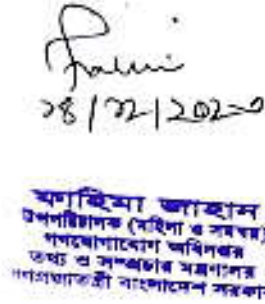 ২৪/১২/২০২০
ফাহিমা জাহান
উপপরিচালক (মহিলা ও সমন্বয়)
গণযোগাযোগ অধিদপ্তর
তথ্য ও সম্প্রচার মন্ত্রণালয়
গণপ্রজাতন্ত্রী বাংলাদেশ সরকার